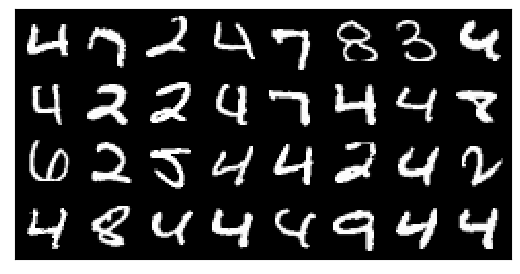 4 7 2 4 7 8 3 4
4 2 2 4 7 4 4 8
6 2 5 4 4 2 4 2
4 8 4 4 4 9 4 4